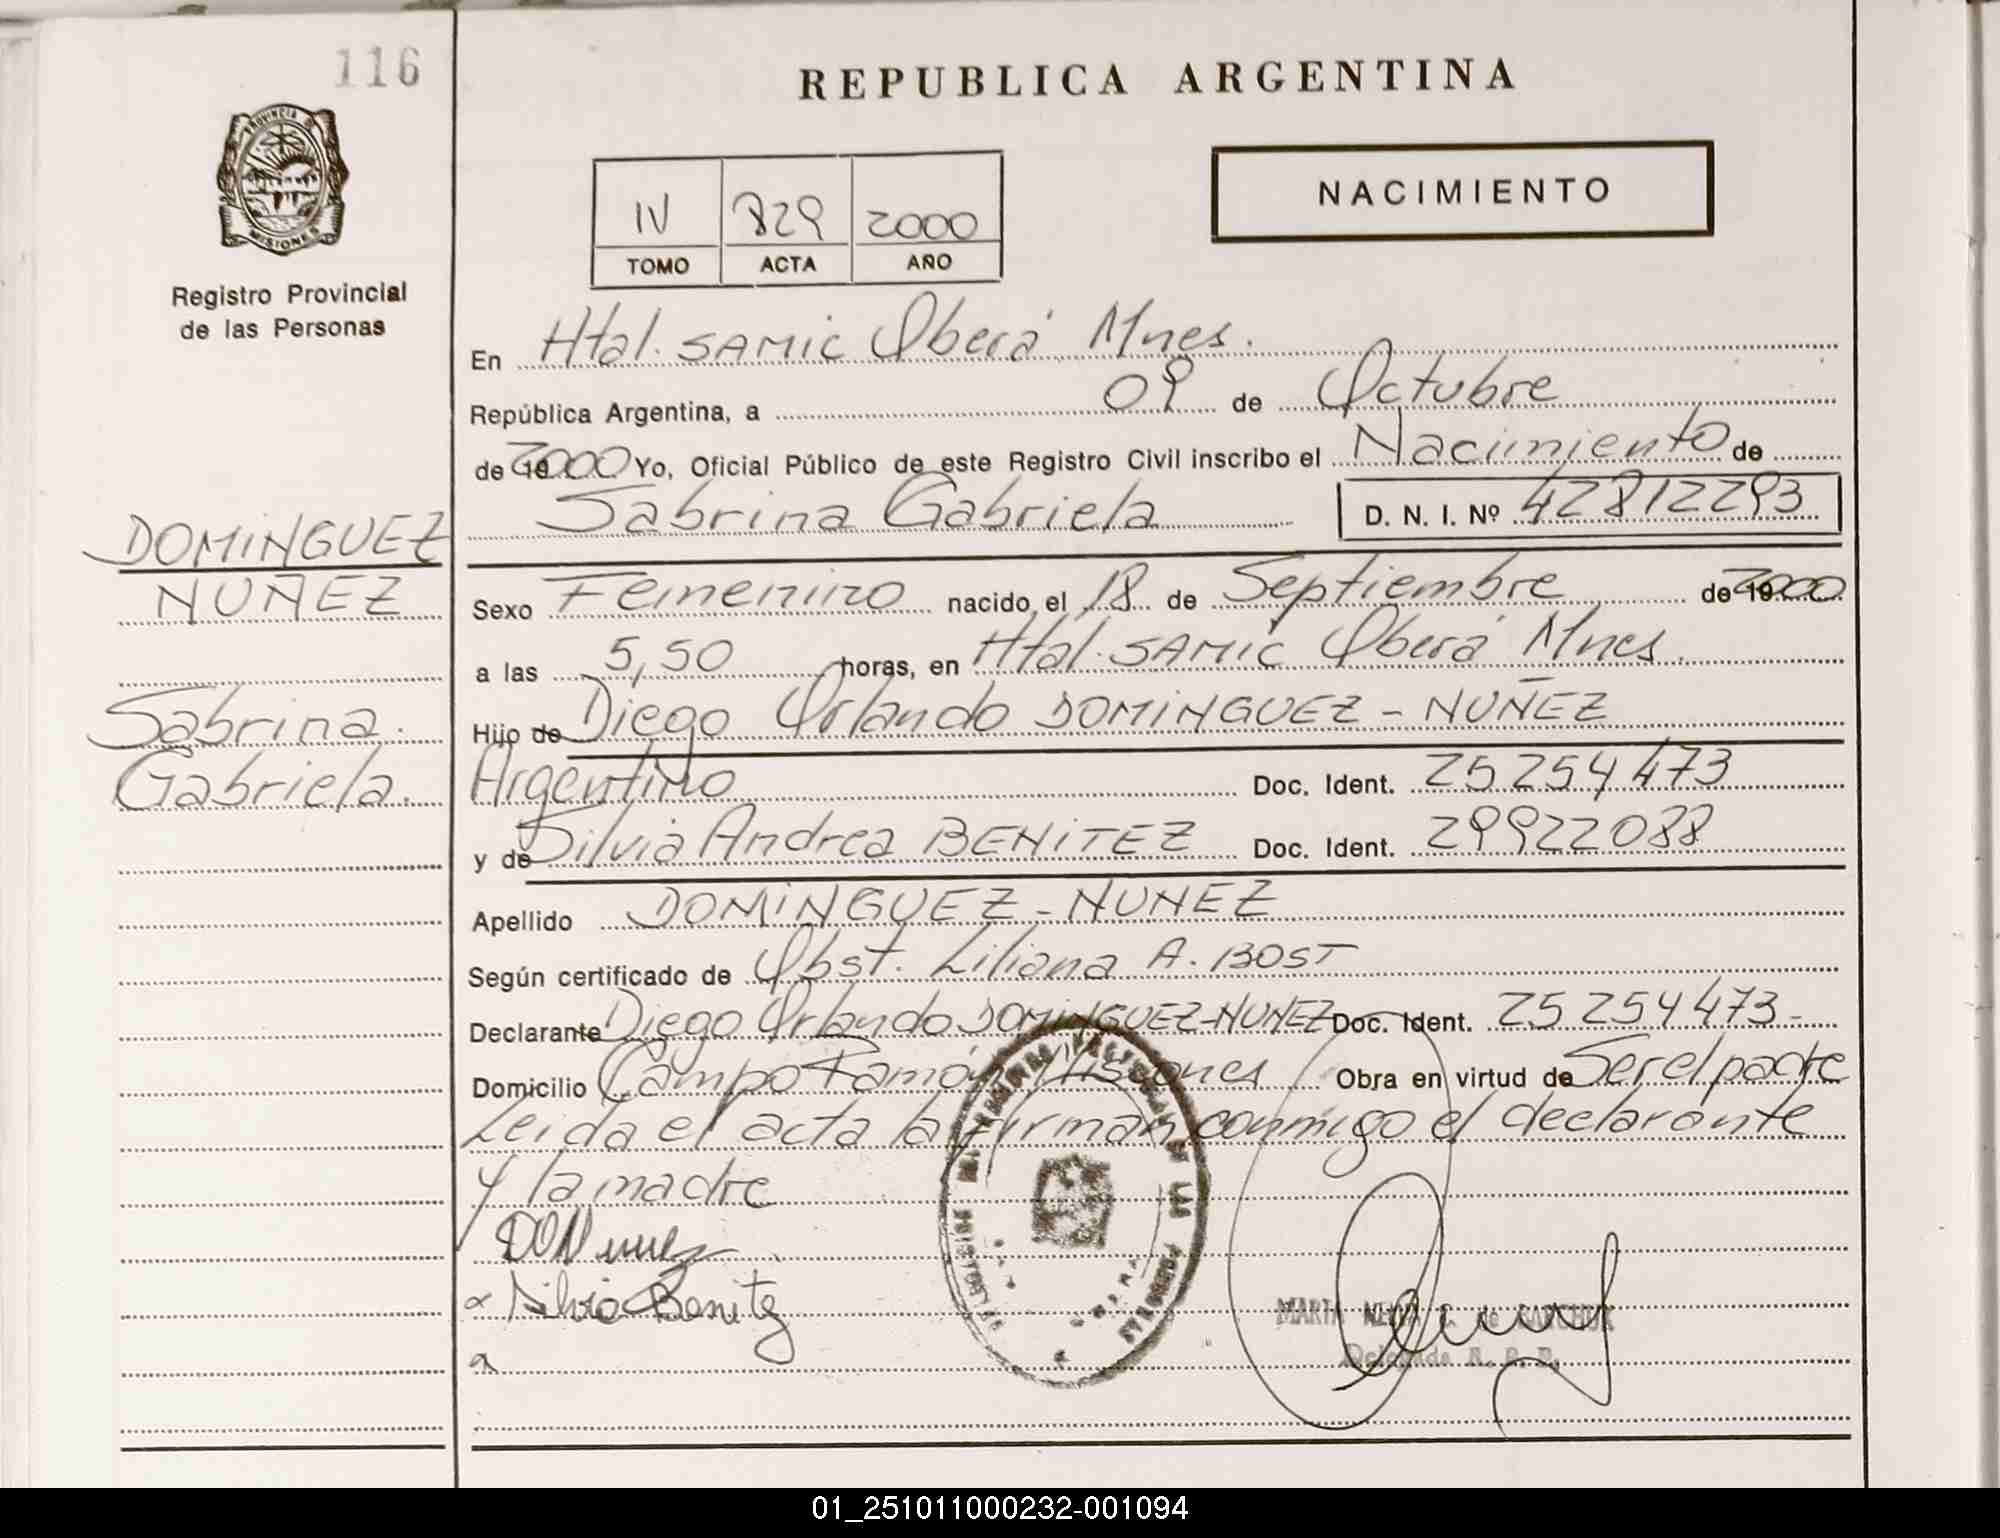 116
REPUBLICA ARGENTINA
PROVINCIA DE
MISIONES
Registro Provincial
de las Personas
NACIMIENTO
IV 829 2000
TOMO ACTA AÑO
En Htal. SAMIC Oberá Mnes.
República Argentina, a 09 de Octubre
de 2000 Yo, Oficial Público de este Registro Civil inscribo el Nacimiento de
Sabrina Gabriela D. N. I. Nº 42812293
DOMINGUEZ
NUÑEZ
Sabrina
Gabriela.
Sexo Femenino nacido el 18 de Septiembre de 2000
a las 5,50 horas, en Htal. SAMIC Oberá Mnes.
Hijo de Diego Orlando DOMINGUEZ - NUÑEZ
Argentino Doc. Ident. 25254473
y de Silvia Andrea BENITEZ Doc. Ident. 29922088
Apellido DOMINGUEZ - NUÑEZ
Según certificado de Obst. Liliana A. BOST
Declarante Diego Orlando DOMINGUEZ-NUÑEZ Doc. Ident. 25254473-
Domicilio Campo Ramón Misiones Obra en virtud de Ser el padre
Leida el acta la firman conmigo el declarante
y la madre
DON unez
Silvia Benitez
MARTA de
Delegada R. P. P.
01_251011000232-001094